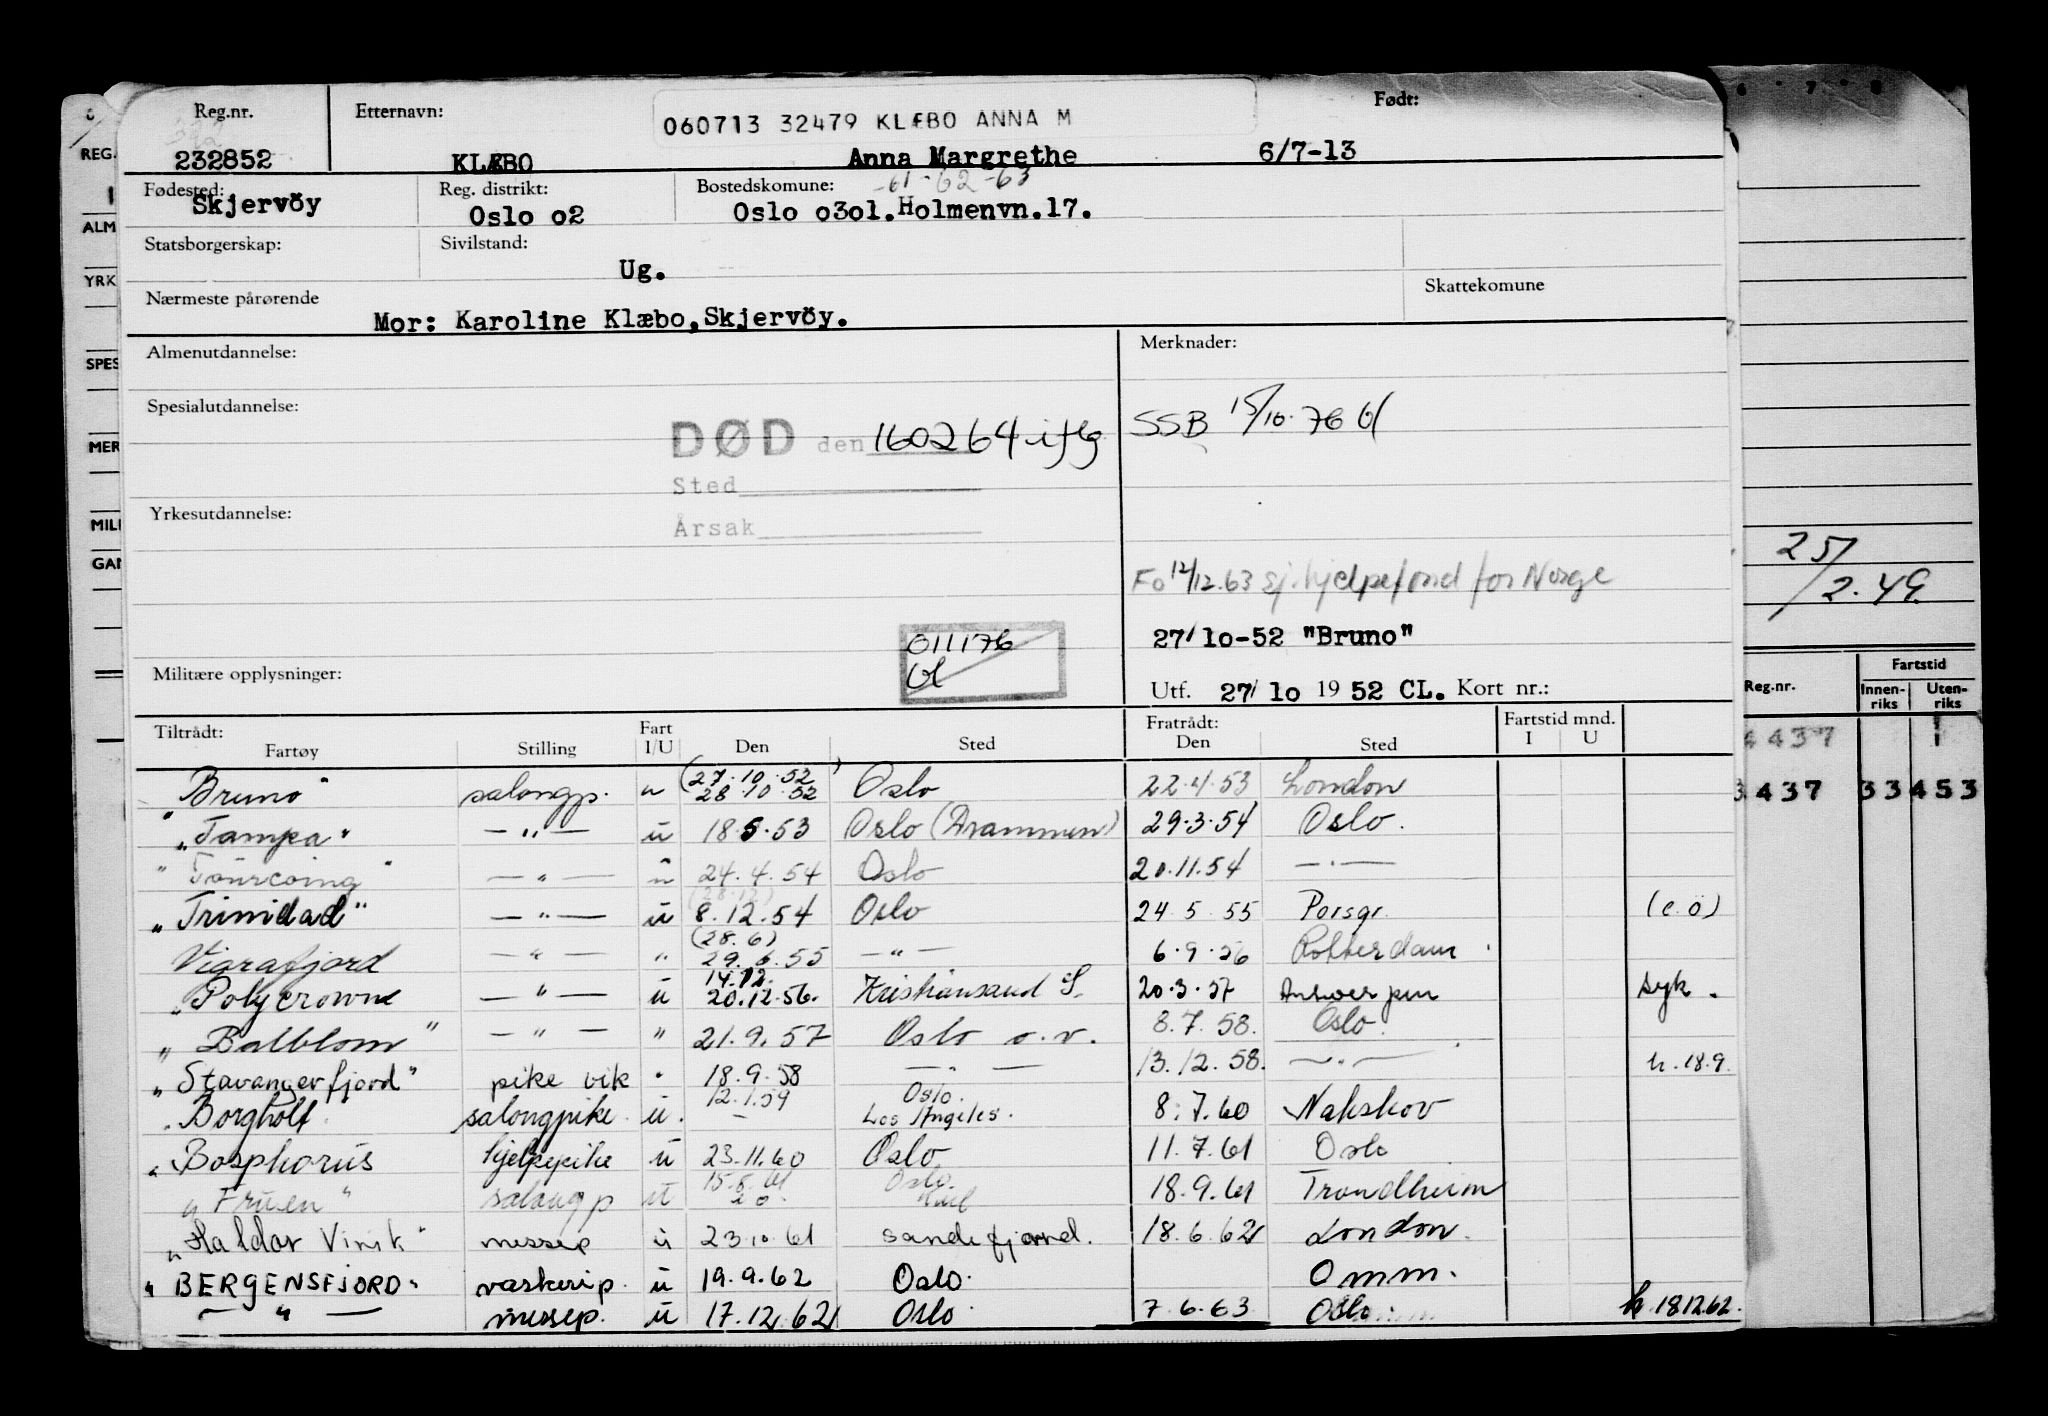 Reg.nr. Etternavn: 060713 32479 KLÆBO ANNA M Født:
232852 KLÆBO Anna Margrethe 6/7-13
Fødested: Reg. distrikt: Bostedskomune: -61-62-63
Skjervöy Oslo o2 Oslo o3o1. Holmenvn.17.
Statsborgerskap: Sivilstand:
Ug.
Nærmeste pårørende Skattekomune
Mor: Karoline Klæbo, Skjervöy.
Almenutdannelse: Merknader:
Spesialutdannelse: SSB 15/10.76
DØD den 160264 iflg
Sted
Yrkesutdannelse: Årsak
Fo 12/12.63 sj.hjelpefond for Norge
011176 27/10-52 "Bruno"
Militære opplysninger: Utf. 27/10 1952 CL. Kort nr.:
Tiltrådt: Fart Fratrådt: Fartstid mnd.
Fartøy Stilling I/U Den Sted Den Sted I U
"Bruno" salongp. u (27.10.52) 28.10.52 Oslo 22.4.53 London
"Tampa" — " — u 18.5.53 Oslo (Drammen) 29.3.54 Oslo.
"Tourcoing" — " — u 24.4.54 Oslo 20.11.54 — " —
"Trinidad" — " — u (28.12) 8.12.54 Oslo 24.5.55 Porsgr. (e.ö)
Vigrafjord — " — " (28.6) 29.6.55 — " — 6.9.56 Rotterdam
"Polycrown — " — u 14.12. 20.12.56. Kristiansand S. 20.3.57 Antwerpen syk.
"Balblom" — " — " 21.9.57 Oslo o.v. 8.7.58. Oslo.
"Stavangerfjord" pike vik " 18.9.58 — " — 13.12.58. — " — h. 18.9.
"Borgholt salongpike u. 12.1.59 — Oslo. Los Angeles. 8.7.60 Nakskov
"Bosphorus hjelpepike u 23.11.60 Oslo 11.7.61 Oslo
"Fruen" salongp u 15.8.61 20. Oslo. 18.9.61 Trondheim
"Haldor Virik" messep u 23.10.61 Sandefjord. 18.6.62 London.
"BERGENSFJORD" vaskerip. u 19.9.62 Oslo. Omm.
— " — messep. u 17.12.62 Oslo. 7.6.63 Oslo. h 181262.
REG.
ALM
YRK
SPES
MER
MILI
GAN
25/2.49
Reg.nr. Fartstid
Innen-riks Uten-riks
4437 1
3437 33 453